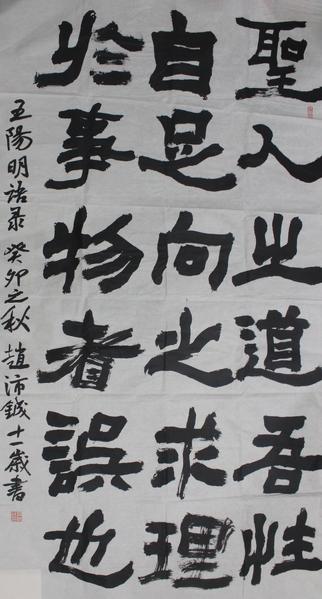 聖人之道吾性
自足向之求理
於事物者誤也
王陽明語录 癸卯之秋 趙沛鋮十一歲書